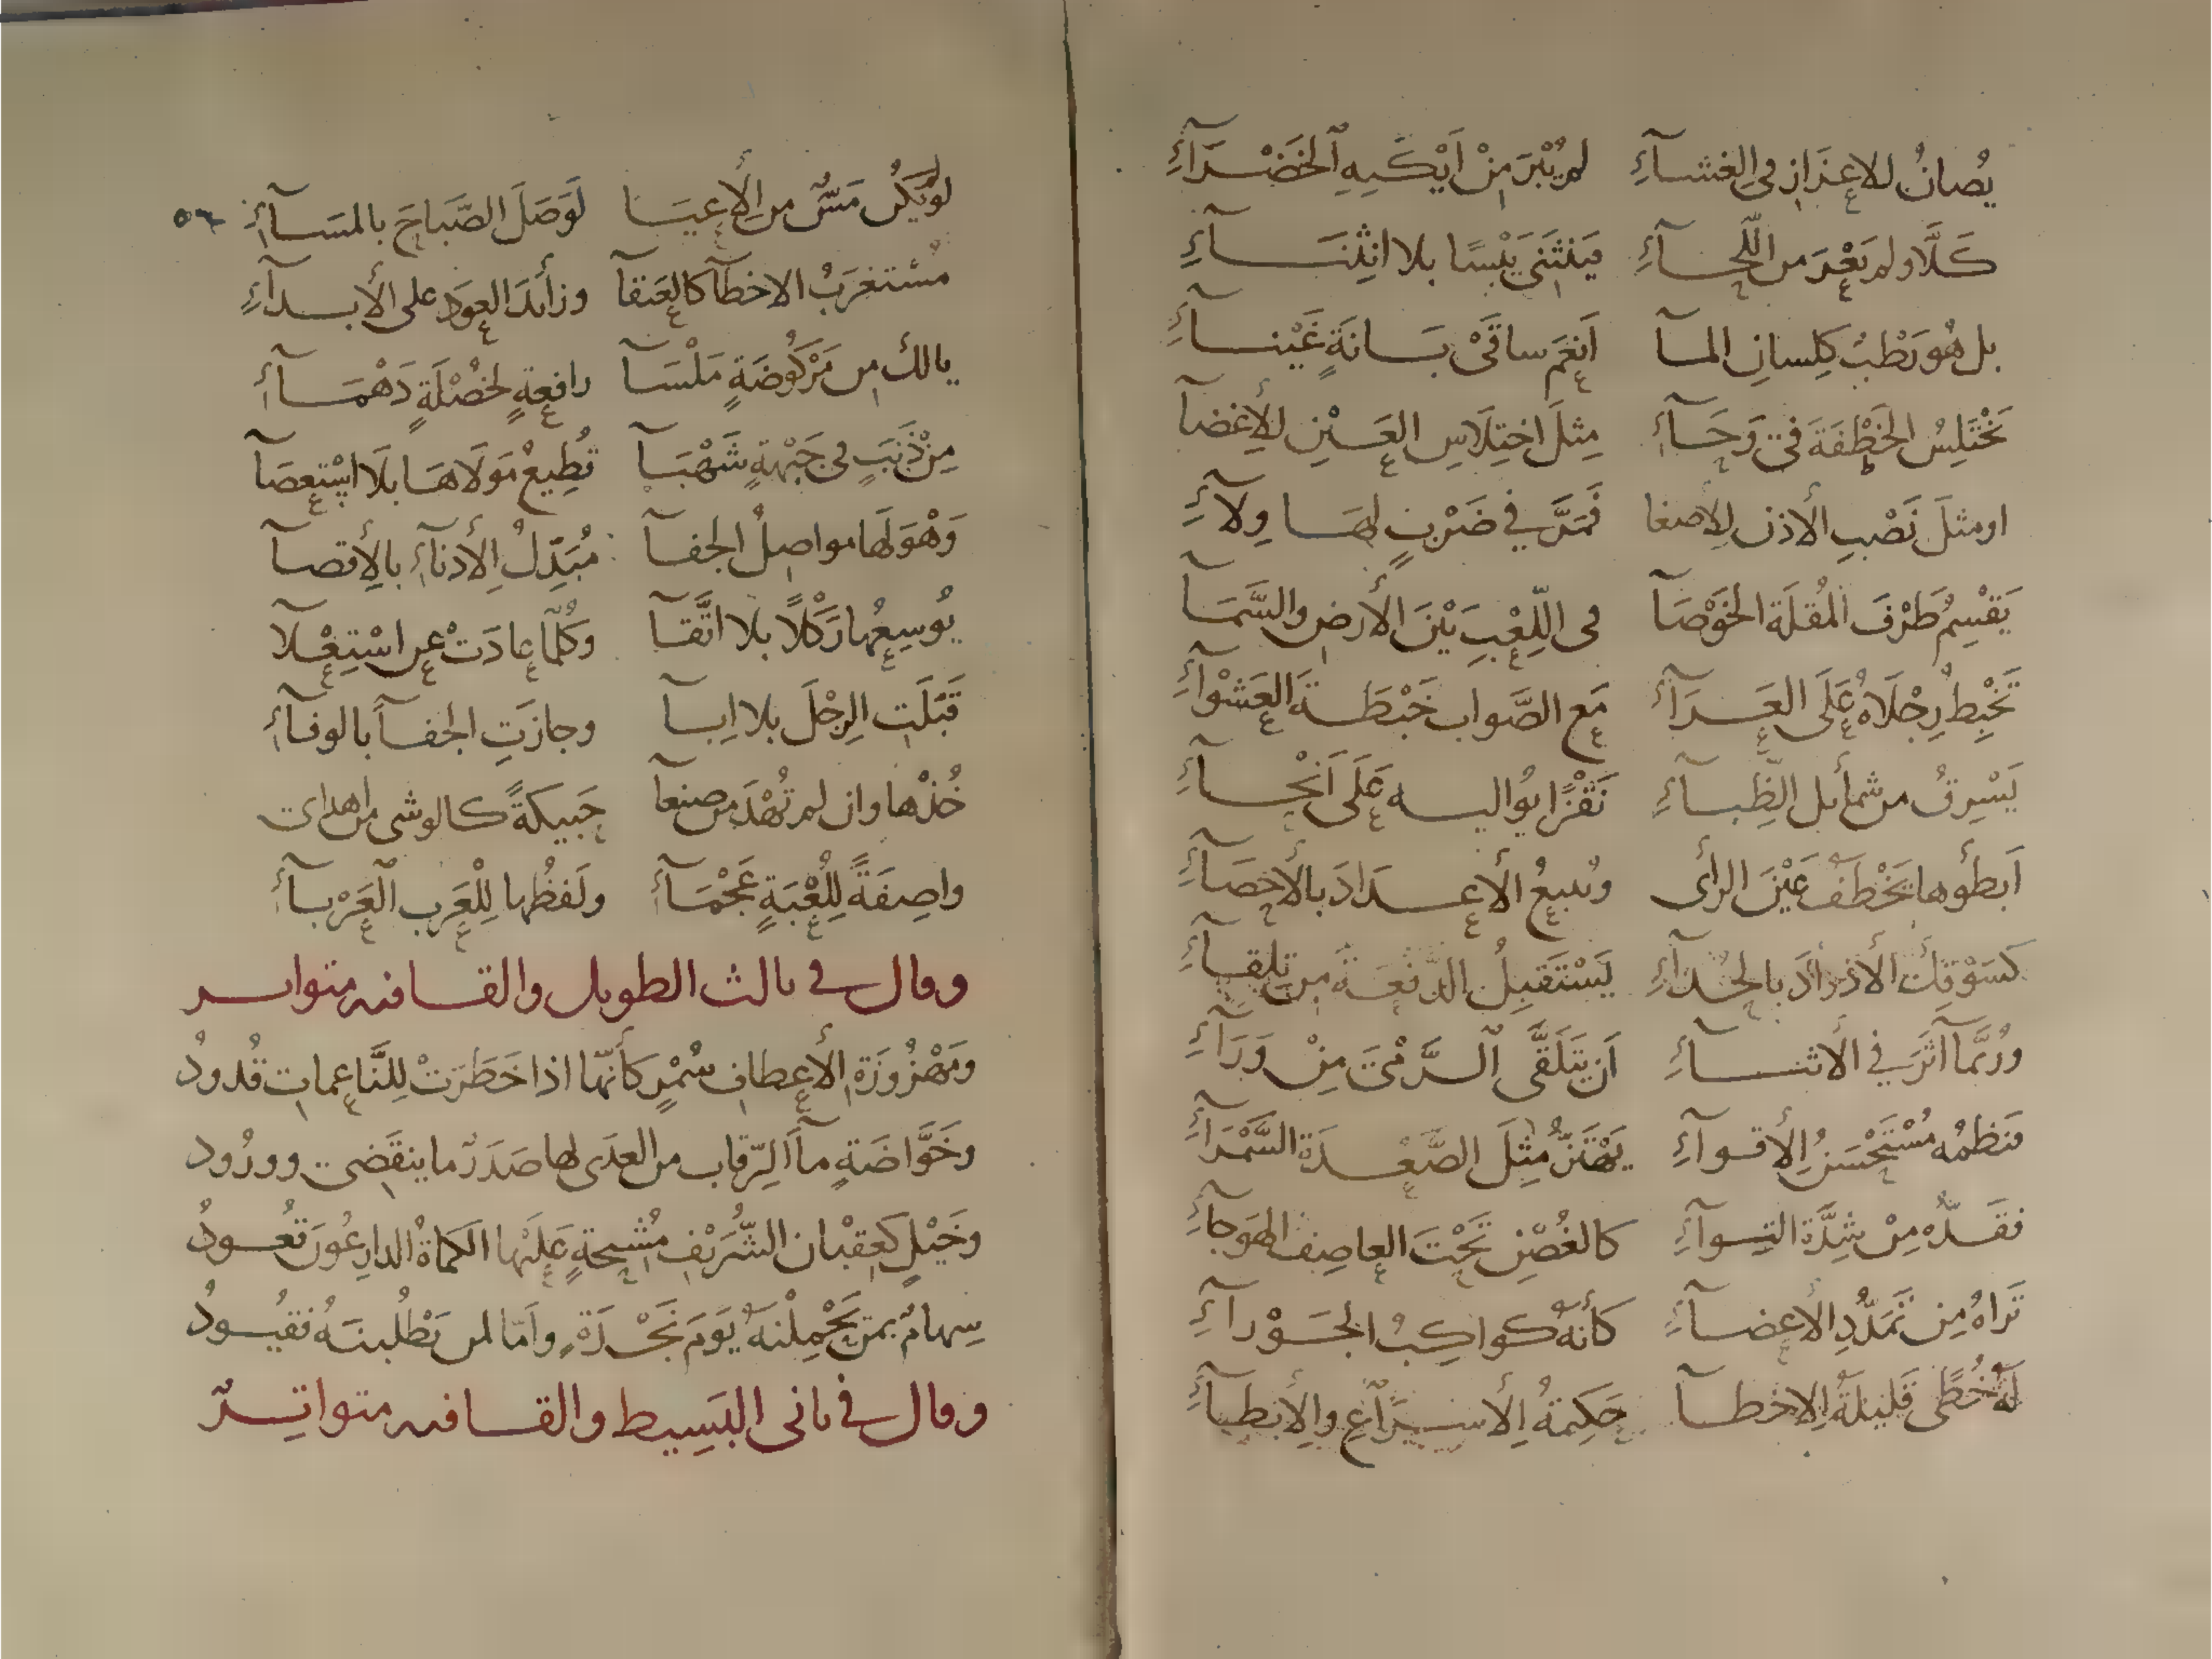 يُصانُ للاعزَازِ في الغشآءِ لم يُبْرَ مِنْ اَيْكَيِهِ الخَضْرَآءِ
كَلَّا ولم يَعْرَ من اللّحآءِ فيَنثَنى يَبْسًا بلا انثِنآءِ
بل هُو رَطْبُ كلِسانِ المآ اَنعَم ساقَىْ بَانَةٍ غَيْنآءِ
يَخْتَلِسُ الخَطْفَةَ فى وَحَآءِ مِثلَ اختِلَاسِ العَيْنِ للأِغضآ
او مثلَ نَصْبِ الأذن لِلأصغا فمَرَّ في ضَرْبٍ لهَا وِلآءِ
يَقْسِمُ طَرْفَ المُقلَة الخَوْصَآ فى اللِّعْبِ بَيْنَ الأرضِ والسَّمَآ
تَخْبِطُ رِجْلَاهُ عَلَى العَرَآءِ مَع الصَّواب خَبْطَةَ العَشْوآءِ
يَسْرِقُ من شمأيل الظِّبآءِ نَقْزًا يُواليه عَلَى اَنْحآءِ
اَبطَأُوها يَخْطَفُ عَيْنَ الرأى وتُتبعُ الأعدَادَ بالأحصَآءِ
كسَوْقِكَ الأذوَادَ بالحُدآءِ يَسْتَقبِلُ الدَّفعَةَ من تِلِقآءِ
ورُبَّما آثَرَ في الأثنآءِ اَن يَتَلَقَّى الرَّمْىَ مِنْ وَرَآءِ
فنَظمُه مُسْتَحْسَنُ الأقوآءِ يَهْتَزُّ مثِلَ الصَّعْدَة السَّمْرَآءِ
فقَدُّه مِنْ شِدَّة التِوآءِ كالغُصْنِ تَحْتَ العاصِف الهَوجآءِ
تَراهُ مِن تَمَدُّدِ الأعضآءِ كأنهُ كواكِبُ الجَوْزآءِ
لهُ خُطًى قَليلَةُ الاخطآ حَكِيمَةُ الأسرَاعِ والأبطآءِ
لو يَكُن مَسٌّ من الأِعيَا لَوَصَلَ الصَّبَاحَ بالمسَآءِ
مُستغرَبُ الاخطآ كالعَنقآ وزائدَ العِوَد على الأبدآءِ
يالك من مَرْكُوضَةٍ مَلْسَآ رافعةٍ لخُصْلَةٍ دَهْمَآءِ
مِنْ ذَنَبٍ فى جَبْهةٍ شَهْبَآ تُطِيعُ مَولَاهَا بلَا اسْتِعصَآ
وَهْوَ لَها مواصِلُ الجفآ مُبَدِّلُ الأدنآءِ بالِأقصآ
يُوسِعُها رَكْلًا بلا اتَّقآ وكُلّمآ عادَتْ عن اسْتِعْلا
قَبَّلَتِ الرِجْلَ بلا اِبآ وجازَتِ الجفآ بالوفآءِ
خُذْها وان لم تُهْدَ من صنعآ حَبيكةً كالوشى من اهداى
واصِفَةً لِلُعْبَةٍ عَجْمَآءِ ولَفظُها لِلْعَرِب العَرْبآءِ
وقال في ثالث الطويل والقافيه متواتر
ومَهْزُوزَةِ الأعطافِ سُمْرٍ كأنّها اذا خَطَرَتْ للنَّاعِماتِ قُدودُ
وخَوَّاضَةٍ مآأ الرّقاب من العدَى لها صَدَرٌ ما ينقَضِى وورُود
وخَيْلٍ كَعِقبْان الشُّرَيْفِ مُشِيحةٍ عَلَيْها الكماةُ الدارِعُونَ تُعودُ
سِهامٌ بمن يَحْمِلْنَهُ يَومَ نَجْدَةٍ واَمّا لمن يَطْلُبنَهُ فقيُودُ
وقال في ثانى البَسِيط والقافيه متواتِرٌ